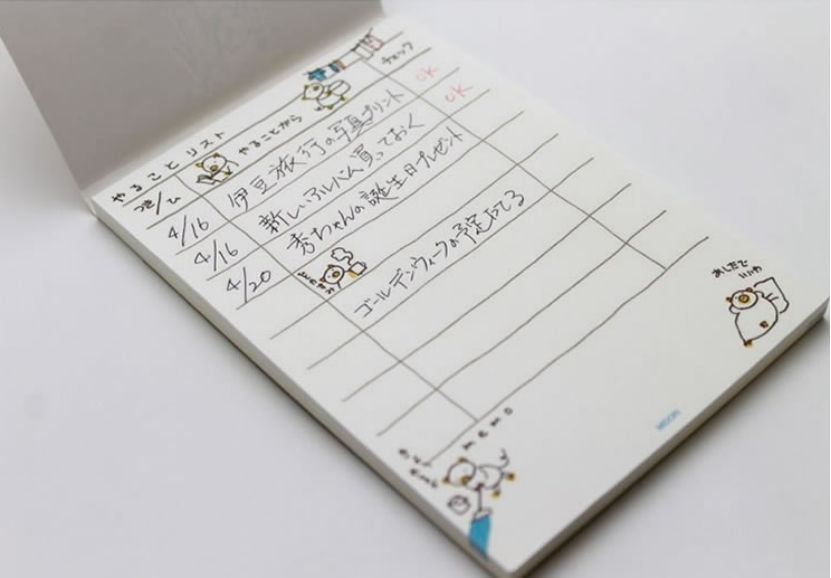 やることリスト
つき/ひ やることがら チェック
4/16 伊豆旅行の写真プリント OK
4/16 新しいフルバム買っておく OK
4/20 秀ちゃんの誕生日プレゼント
ゴールデンウィークの予定たてる
あしたで
いいわ
memo